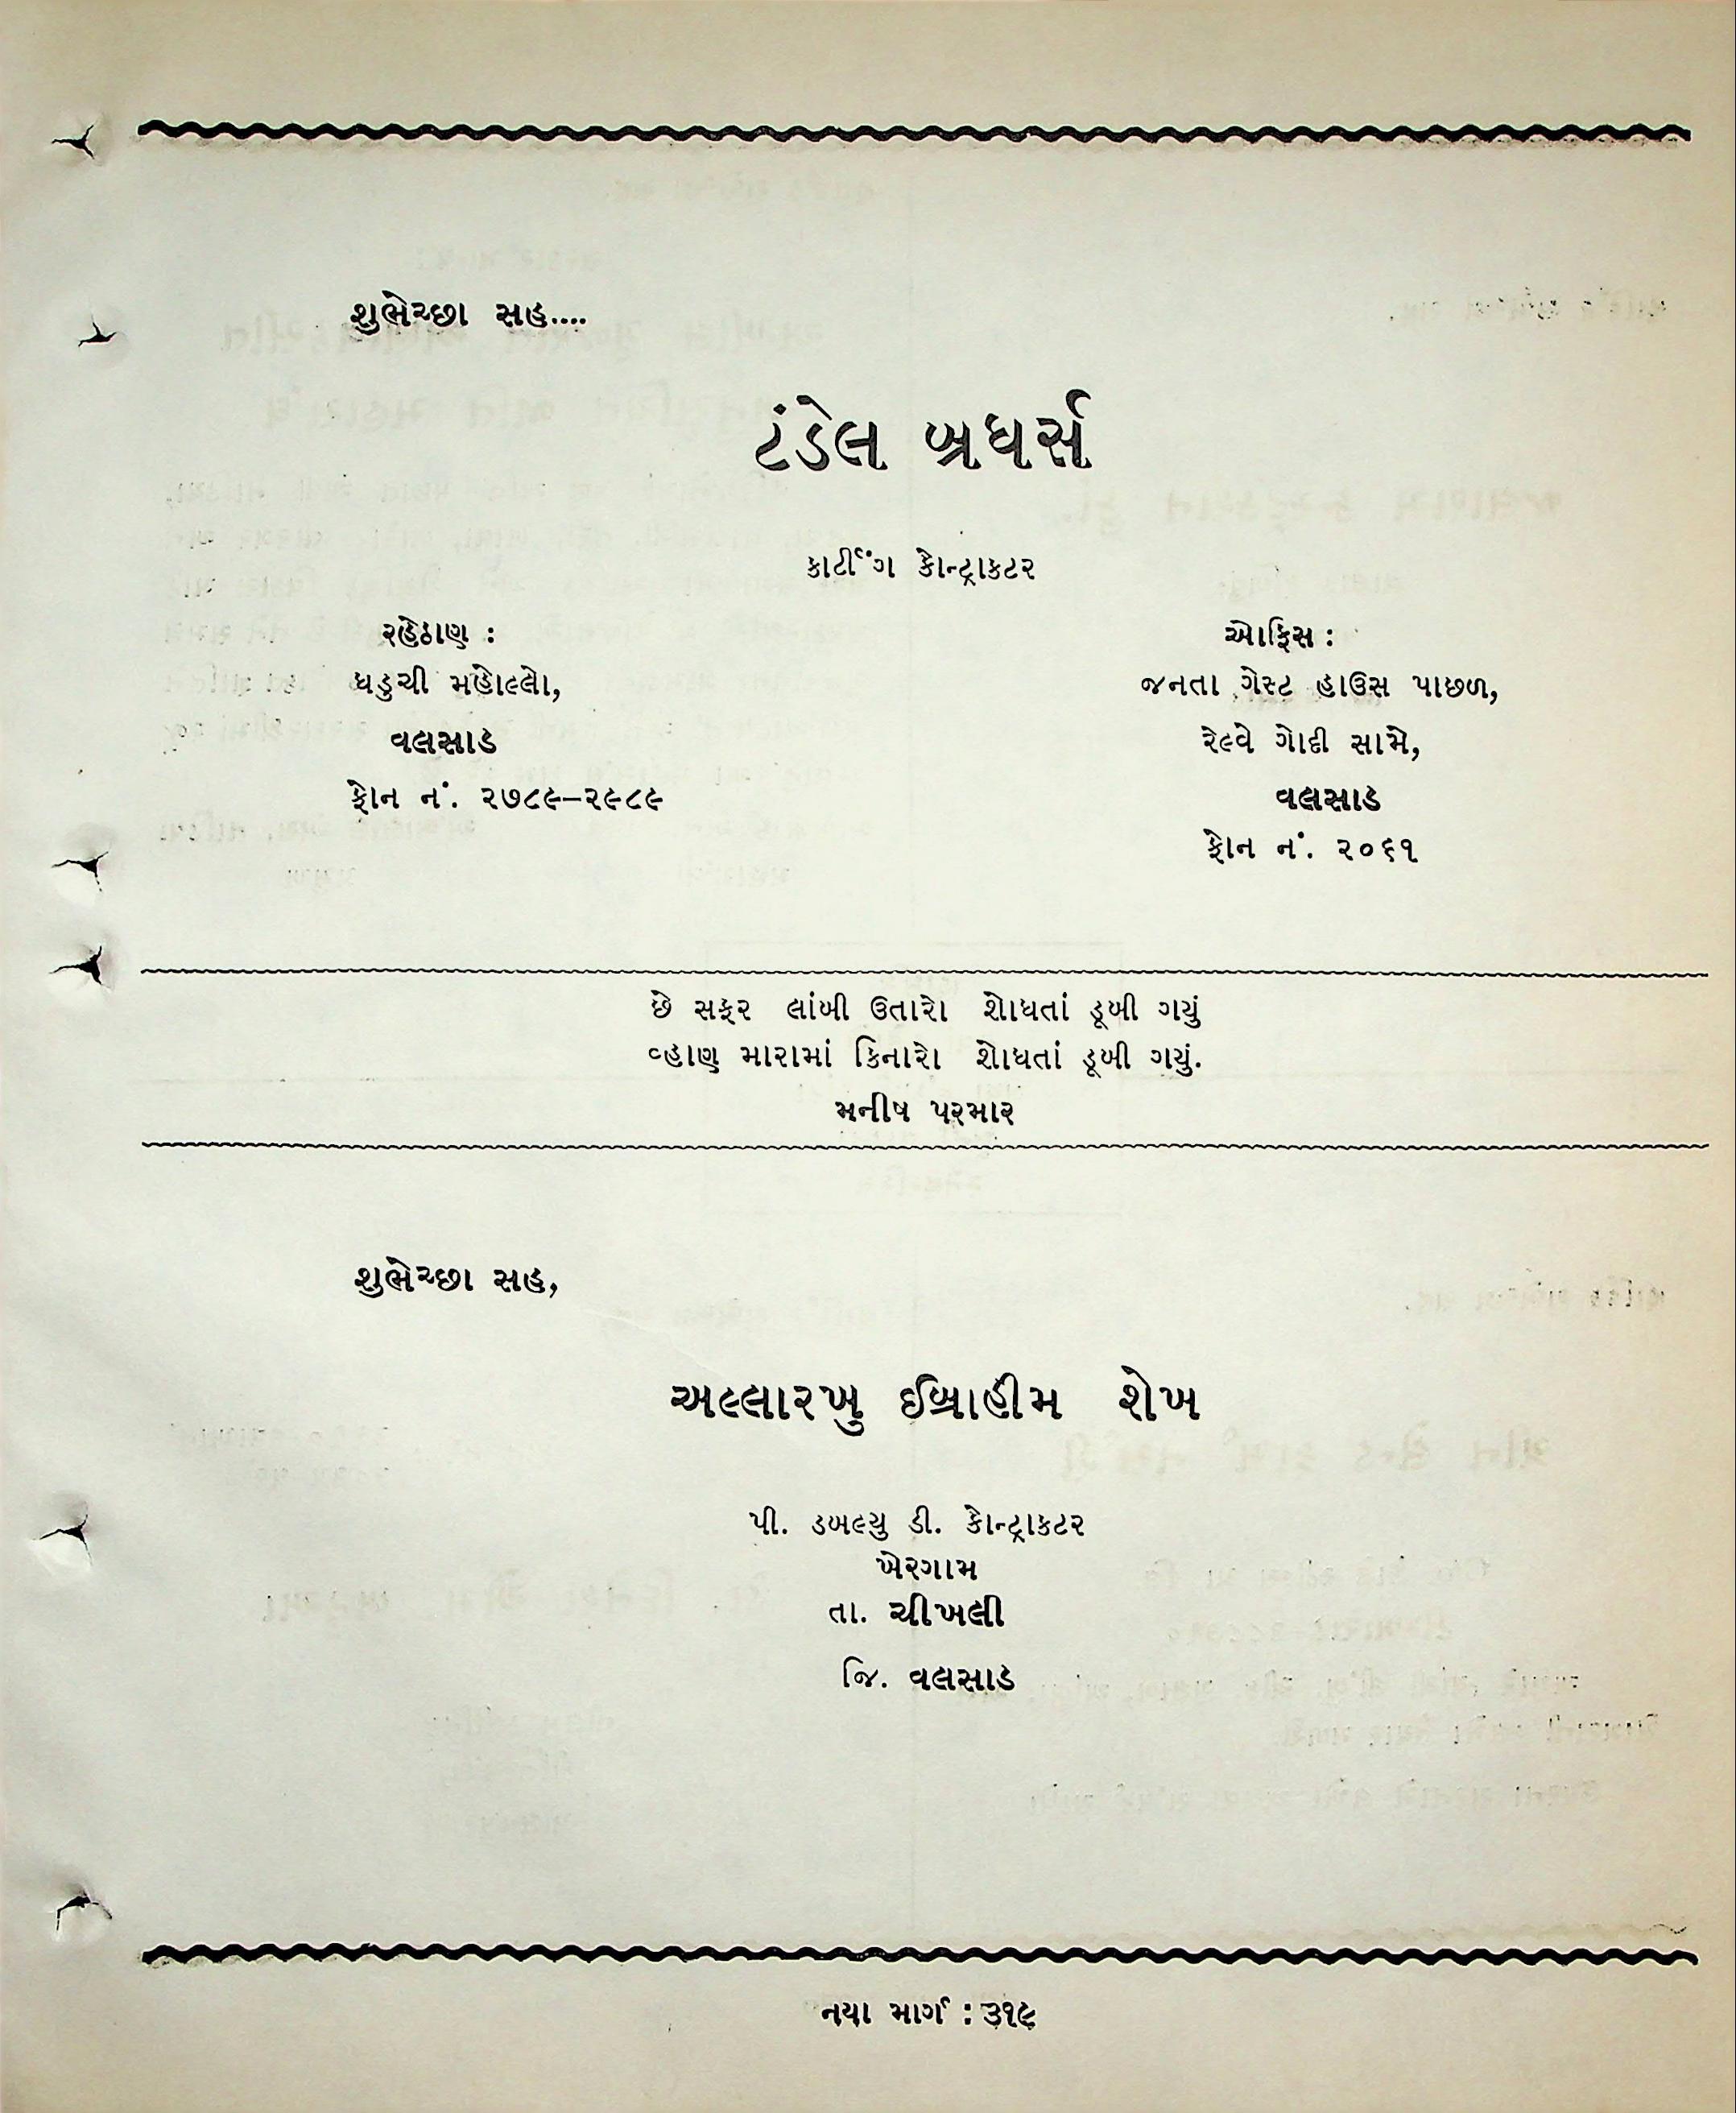 શુભેચ્છા સહ....
ટંડેલ બ્રધર્સ
કાર્ટીંગ કોન્ટ્રાકટર
રહેઠાણ :
ધડુચી મહોલ્લો,
વલસાડ
ફોન નં. ૨૭૮૯–૨૯૮૯
ઓફિસ :
જનતા ગેસ્ટ હાઉસ પાછળ,
રેલ્વે ગોદી સામે,
વલસાડ
ફોન નં. ૨૦૬૧
છે સફર લાંબી ઉતારો શોધતાં ડૂબી ગયું
વ્હાણ મારામાં કિનારો શોધતાં ડૂબી ગયું.
મનીષ પરમાર
શુભેચ્છા સહ,
અલ્લારખુ ઈબ્રાહીમ શેખ
પી. ડબલ્યુ ડી. કોન્ટ્રાકટર
ખેરગામ
તા. ચીખલી
જિ. વલસાડ
નયા માર્ગ : ૩૧૯